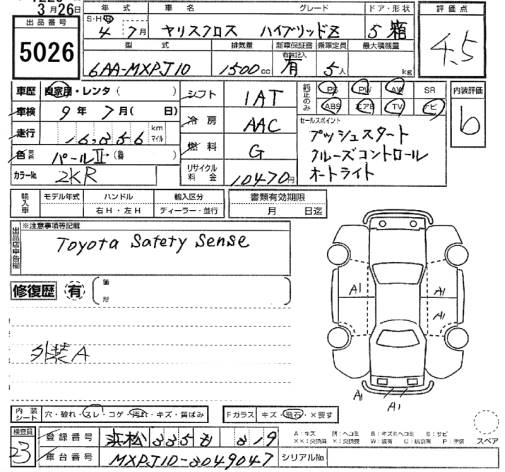 3月26日
出品番号
5026
年式 車名 グレード ドア・形状
S・H
4年 7月 ヤリスクロス ハイブリッドZ 5 箱
型式 排気量 新車保証書 乗車定員 最大積載量
6AA-MXPJ10 1500cc 有 5人 kg
評価点
4.5
車歴 自家用・レンタ( )
車検 9年 7月( 日)
走行 km マイル
色 パールⅡ
カラーNo. 2KR
シフト 1AT
冷房 AAC
燃料 G
リサイクル料金 10470円
純正のみ PS PW AW SR
ABS エアB TV ナビ
内装評価
b
セールスポイント
プッシュスタート
クルーズコントロール
オートライト
輸入車 モデル年式 ハンドル 輸入区分
右H・左H ディーラー・並行
書類有効期限
月 日迄
※注意事項等記載
Toyota Safety Sense
修復歴 有
外装A
A1 A1
A1 A1
内装シート 穴・破れ・スレ・コゲ・汚れ・キズ・黄ばみ
Fガラス キズ・飛石・×要す
スペア
検査員
23
登録番号 浜松 335 る 819
車台番号 MXPJ10-3049047
シリアルNo.